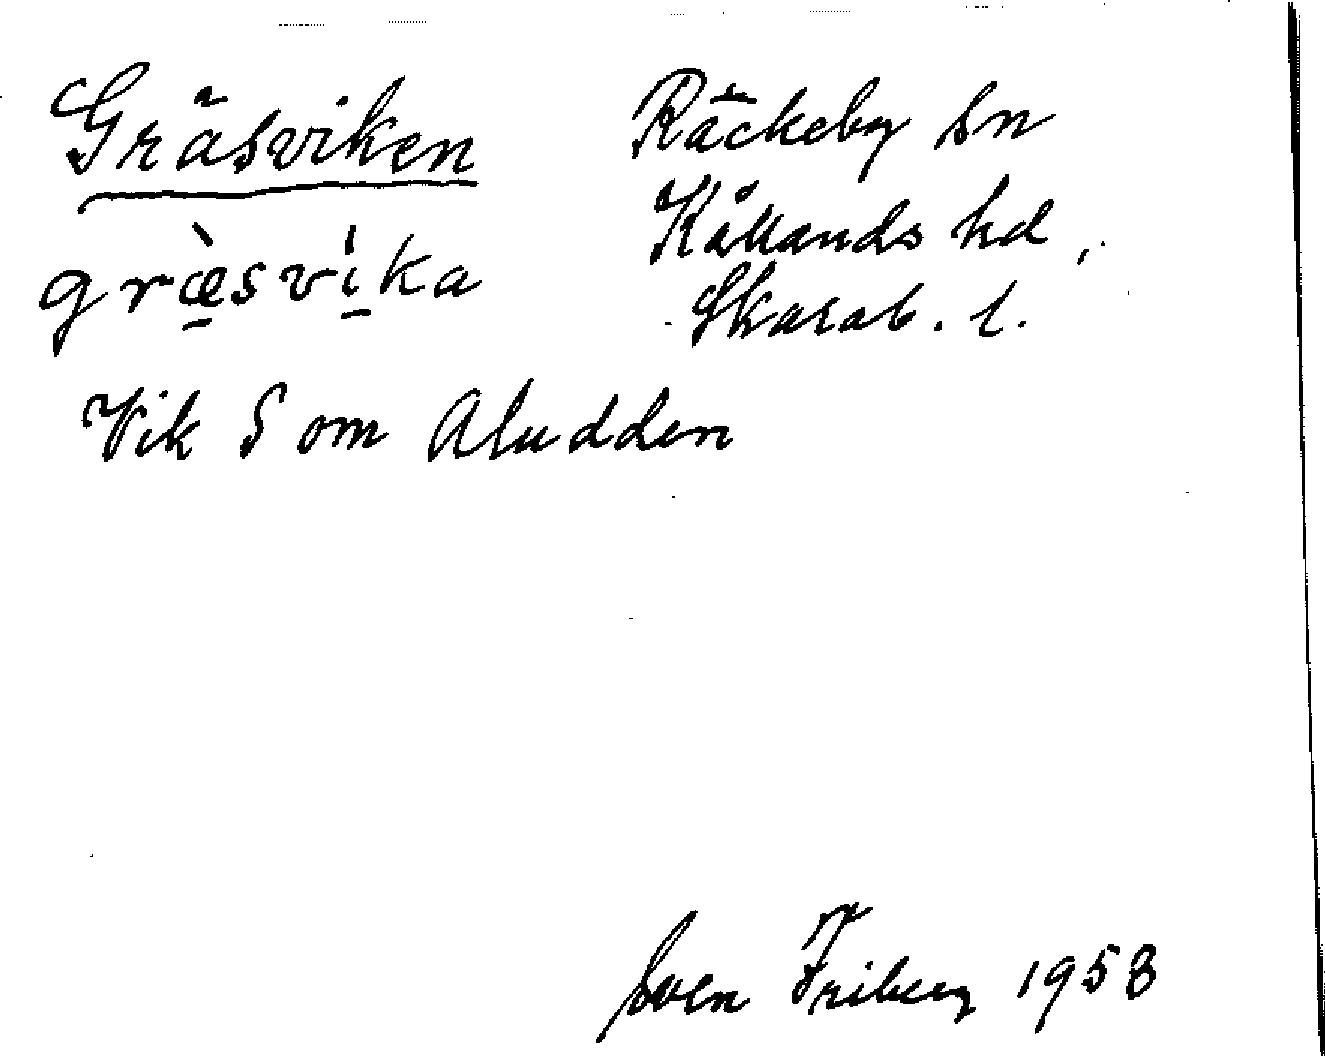 Gräsviken
græ̠̀svi̠̍ka
Räckeby sn
Kållands hd,
Skarab. l.
Vik S om Aludden
Sven Friberg 1958